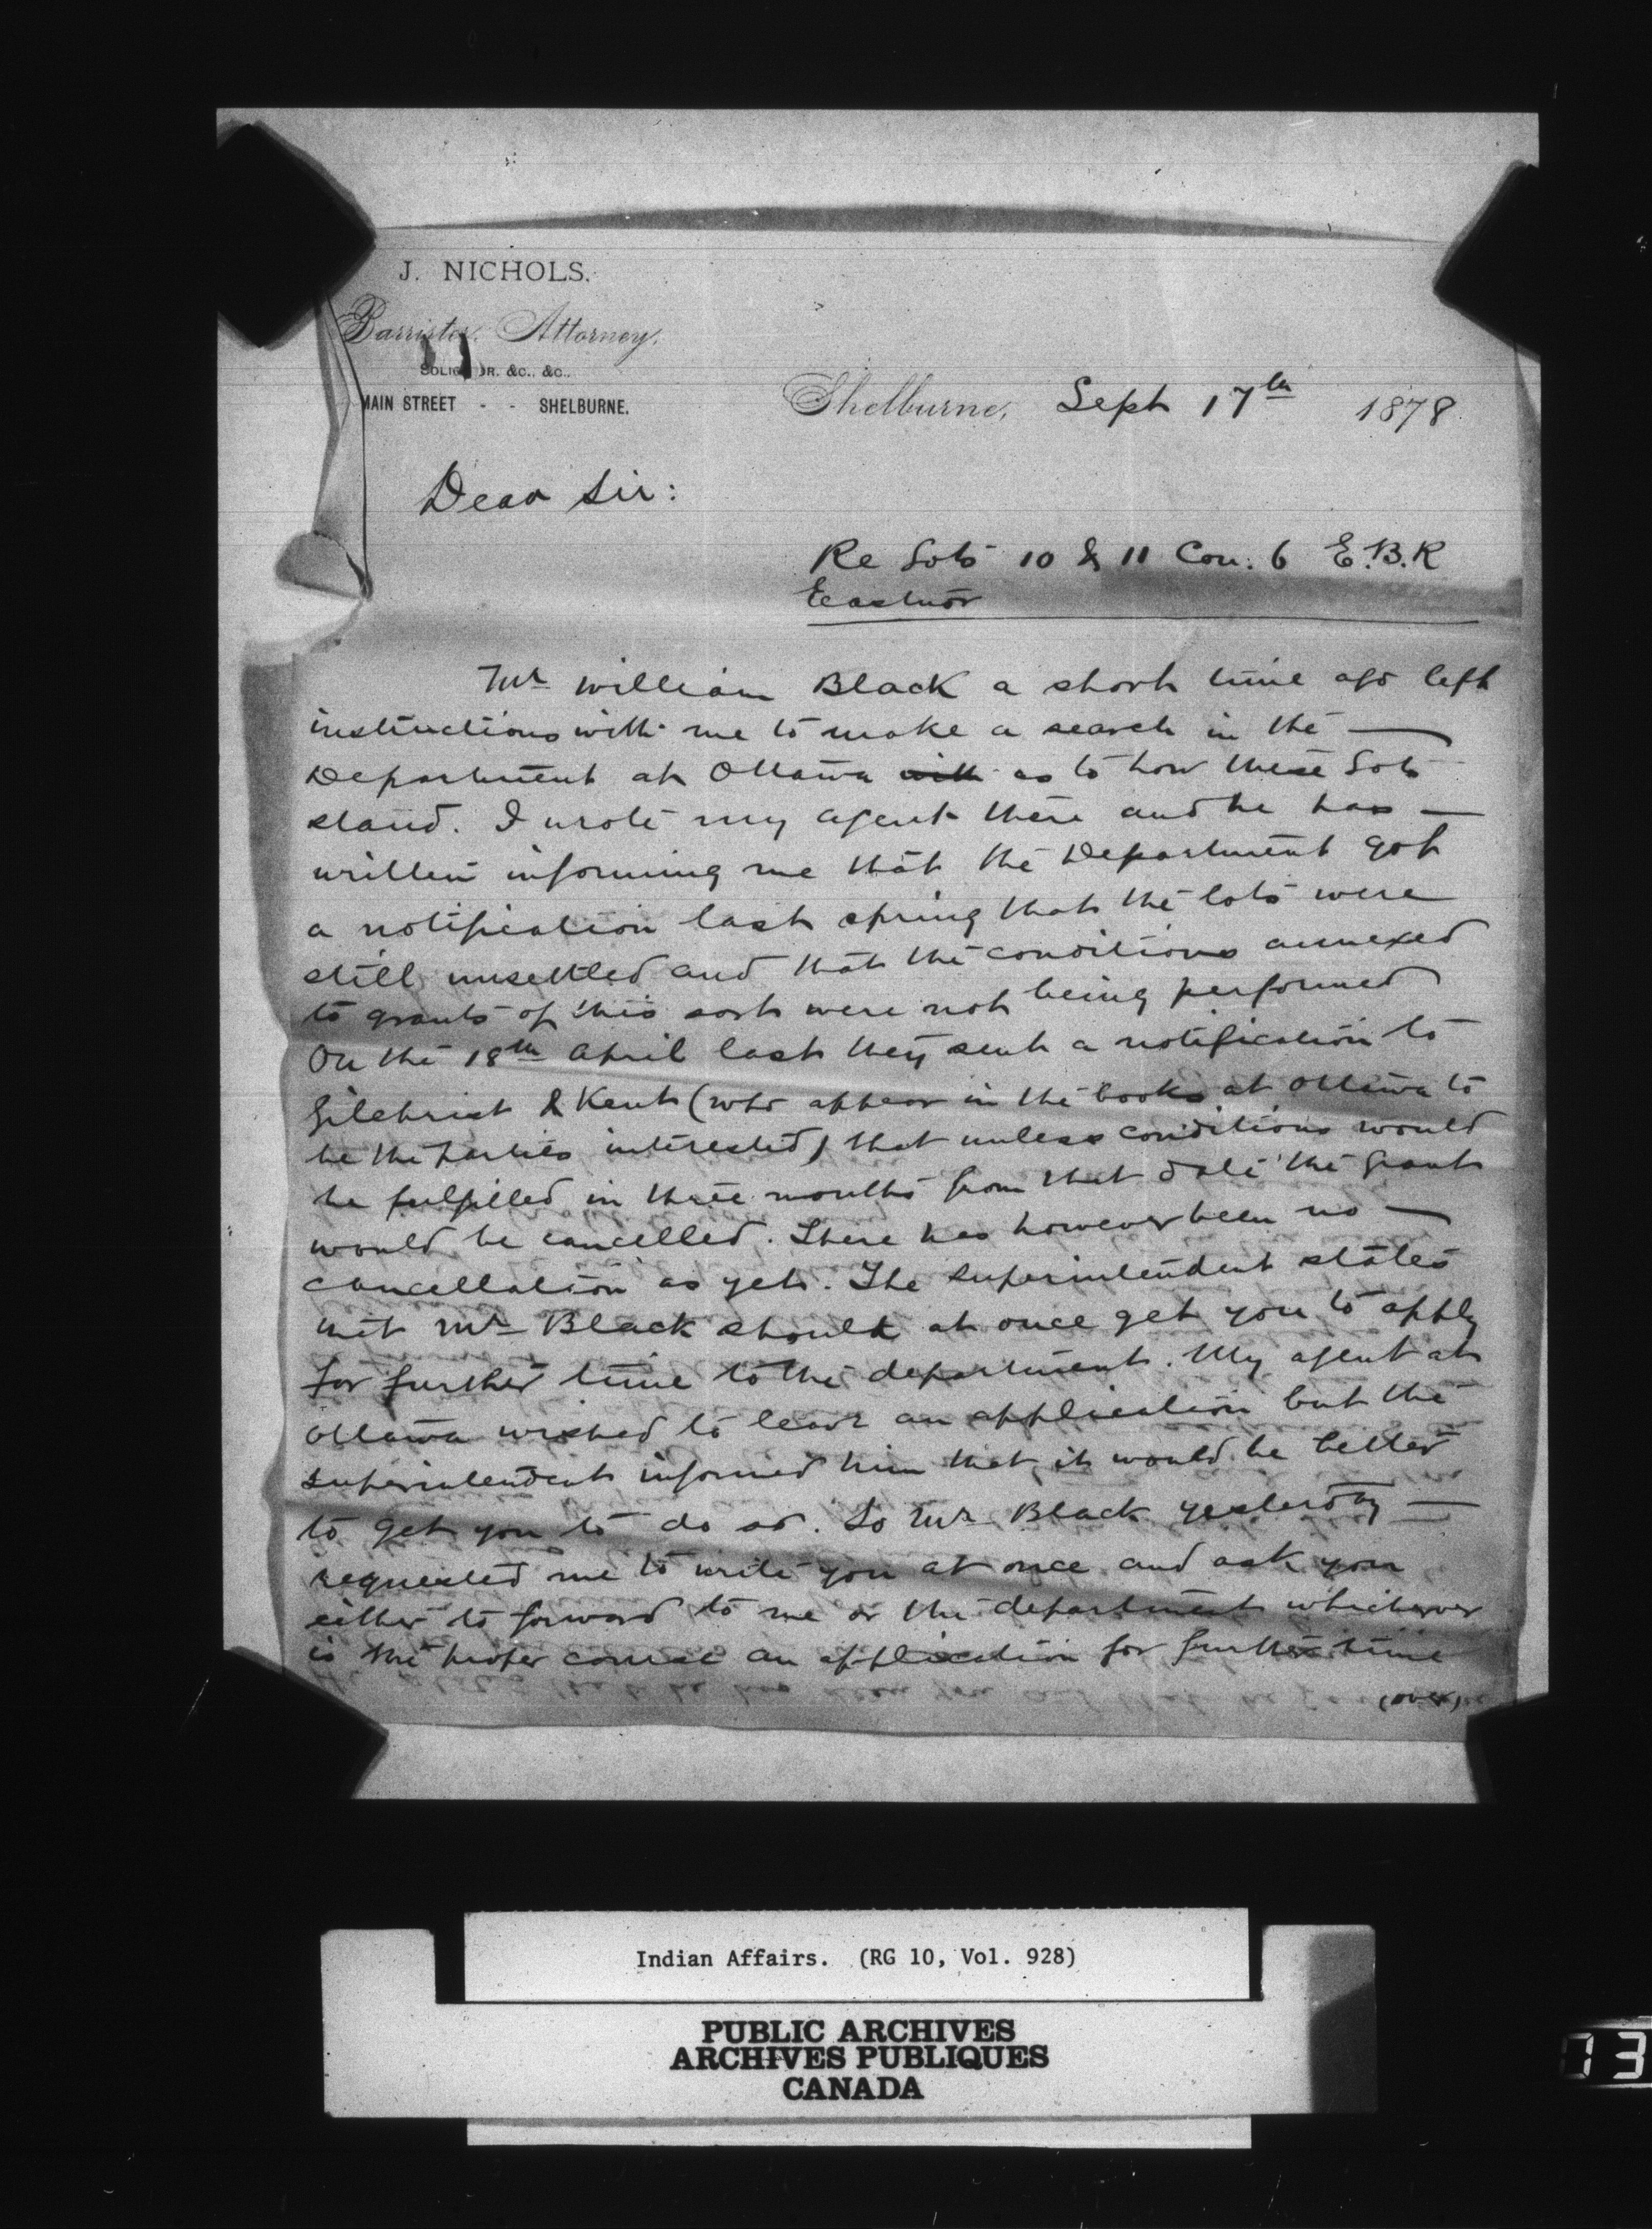 J. NICHOLS,
Barrister, Attorney,
SOLICITOR. &C., &C.,
MAIN STREET - - SHELBURNE.
Shelburne, Sept 17th 1878
Dear Sir:
Re Lots 10 & 11 Con: 6 E.B.R
Eastnor
Mr William Black a short time ago left
instructions with me to make a search in the —
Department at Ottawa with as to how these Lots
stand. I wrote my agent there and he has —
written informing me that the Department got
a notification last spring that the lots were
still unsettled and that the conditions annexed
to grants of this sort were not being performed
On the 18th April last they sent a notification to
Gilchrist & Kent (who appear in the books at Ottawa to
be the parties interested) that unless conditions would
be fulfilled in three months from that date the grants
would be cancelled. There has however been no —
cancellation as yet. The Superintendent states
that Mr Black should at once get you to apply
for further time to the department. My agent at
Ottawa wished to leave an application but the
superintendent informed him that it would be better
to get you to do so. So Mr Black yesterday —
requested me to write you at once and ask you
either to forward to me or the department whichever
is the proper course an application for further time
(over)
Indian Affairs. (RG 10, Vol. 928)
PUBLIC ARCHIVES
ARCHIVES PUBLIQUES
CANADA
73